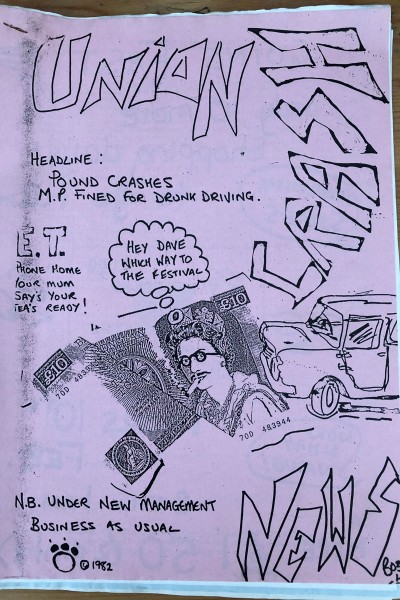 UNION
CRASH
HEADLINE :
POUND CRASHES
M.P. FINED FOR DRUNK DRIVING.
E.T.
PHONE HOME
YOUR MUM
SAY'S YOUR
TEA'S READY !
HEY DAVE
WHICH WAY TO
THE FESTIVAL
£10
£10
70D 483944
N.B. UNDER NEW MANAGEMENT
BUSINESS AS USUAL
© 1982
NEWS